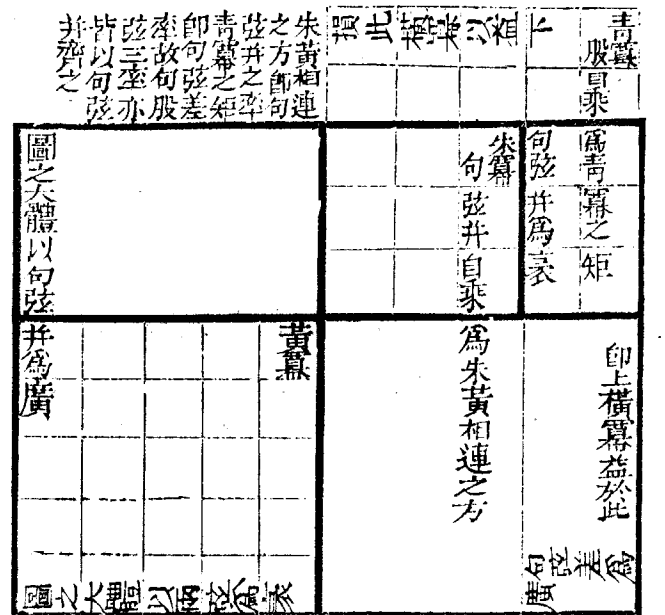 青冪
股自乘
爲青冪之矩
句弦并爲袤
損此橫冪以置下
即上橫冪益於此
句弦差爲廣
朱冪
句弦并自乘
爲朱黃相連之方
朱黃相連
之方即句
弦并之率
青冪之矩
即句弦差
率故句股
弦三率亦
皆以句弦
并齊之
黃冪
圖之大體以句弦并爲廣
圖之大體以兩弦爲袤